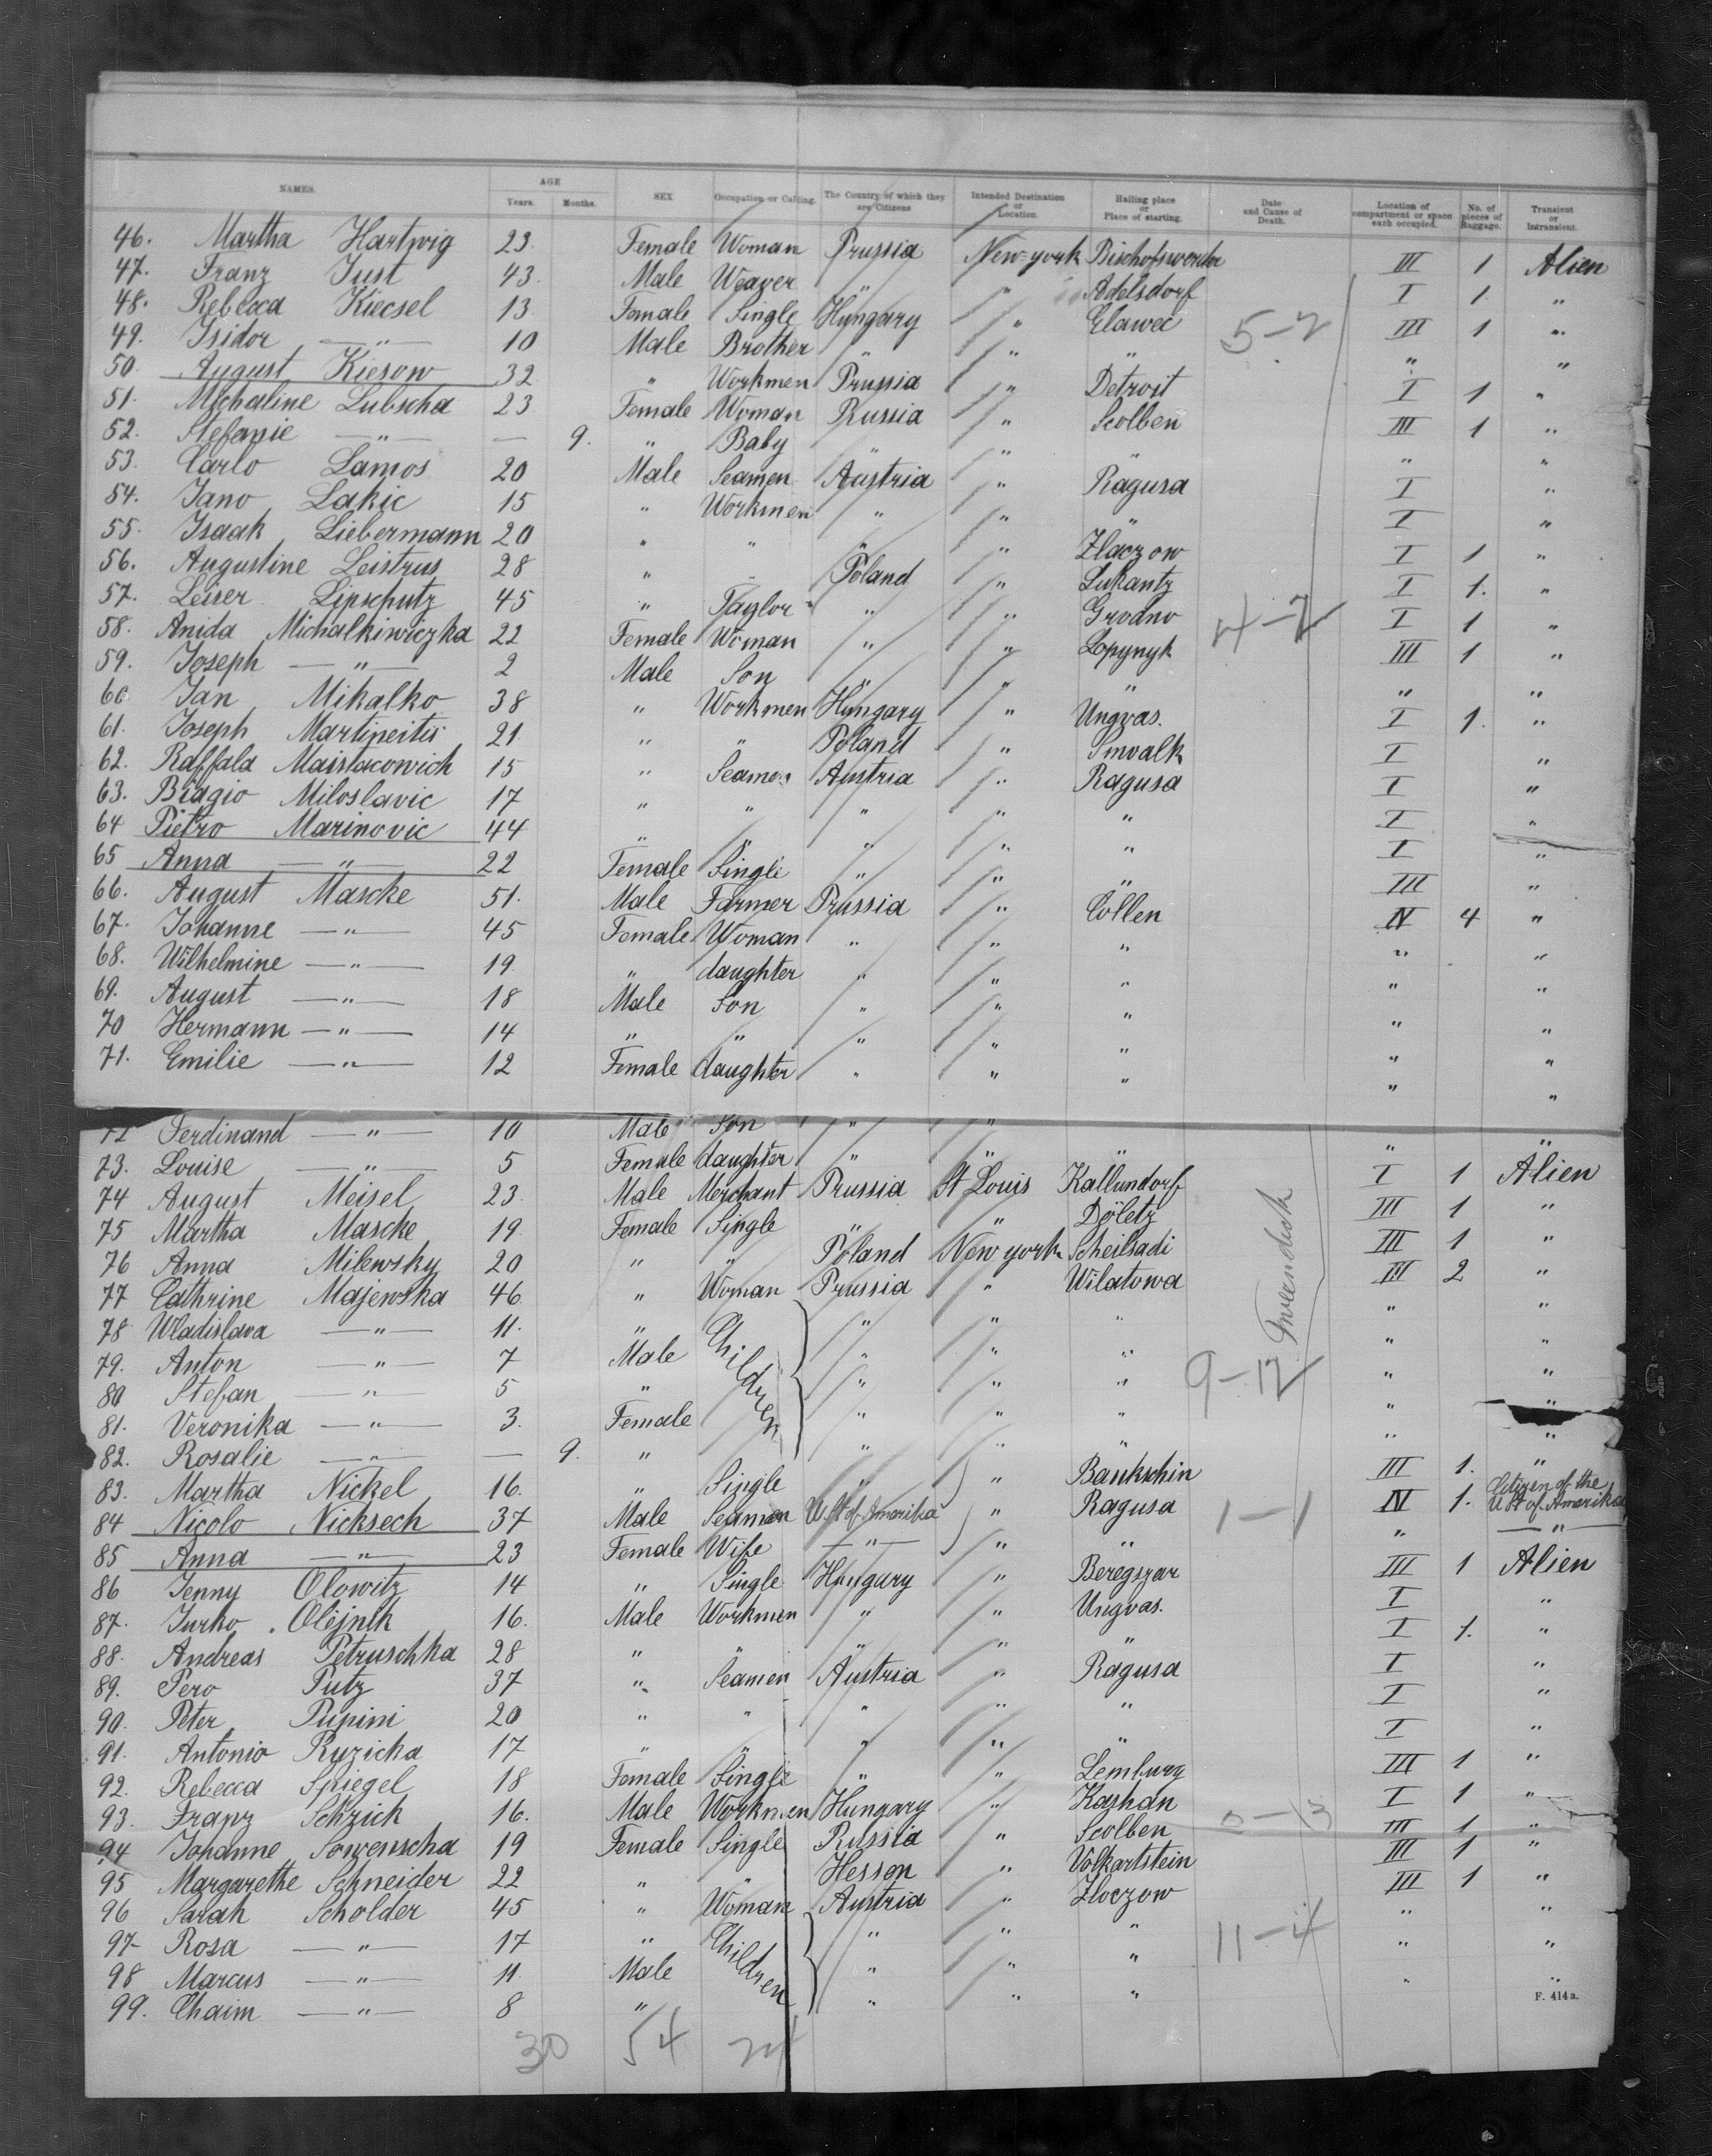 NAMES. AGE SEX Occupation or Calling. The Country of which they are Citizens Intended Destination or Location. Hailing place or Place of starting. Date and Cause of Death. Location of compartment or space each occupied. No. of pieces of Baggage. Transient or Intransient.
Years. Months.
46. Martha Hartwig 23. Female Woman Prussia New-york Bischofswerder III 1 Alien
47. Franz Just 43. Male Weaver " " Adelsdorf I 1. "
48. Rebecca Kiecsel 13. Female Single Hungary " Elawec III 1 "
49. Isidor — " — 10 Male Brother " " " " "
50. August Kiesow 32 " Workmen Prussia " Detroit I 1 "
51. Michaline Lubscha 23 Female Woman Russia " Scolben III 1 "
52. Stefanie — " — — 9. " Baby " " " "
53. Carlo Lamos 20 Male Seamen Austria " Ragusa I "
54. Jano Lakic 15 " Workmen " " " I "
55. Isaak Liebermann 20 " " " " Zlaczow I 1 "
56. Augustine Leistrus 28 " " Poland " Lukantz I 1. "
57. Leiser Lipschutz 45 " Taylor " " Grodno I 1 "
58. Anida Michalkiwiczka 22 Female Woman " " Lopynyk III 1 "
59. Joseph — " — 2 Male Son " " " "
60 Jan Mikalko 38 " Workmen Hungary " Ungvas. I 1. "
61. Joseph Martineitis 21. " " Poland " Suwalk I "
62. Raffala Maislacowich 15 " Seamen Austria " Ragusa I "
63. Biagio Miloslavic 17 " " " " " I "
64 Pietro Marinovic 44 " " " " " I "
65 Anna — " — 22 Female Single " " " III "
66. August Mascke 51. Male Farmer Prussia " Cöllen IV 4 "
67. Johanne — " — 45 Female Woman " " " " "
68. Wilhelmine — " — 19 " daughter " " " " "
69. August — " — 18 Male Son " " " " "
70 Hermann — " — 14 " " " " " " "
71. Emilie — " — 12 Female daughter " " " " "
72 Ferdinand — " — 10 Male Son " "
73. Louise — " — 5 Female daughter " " " " "
74 August Meisel 23. Male Merchant Prussia St Louis Kallundorf I 1 Alien
75 Martha Mascke 19. Female Single " " Döletz III 1 "
76 Anna Milewsky 20 " " Poland New york Scheilsadi III 1 "
77 Cathrine Majewska 46 " Woman Prussia " Wilatowa III 2 "
78 Wladislava — " — 11. " Children " " " " "
79. Anton — " — 7 Male " " " " "
80 Stefan — " — 5 " " " " " "
81. Veronika — " — 3. Female " " " " "
82. Rosalie — " — — 9. " " " " " "
83. Martha Nickel 16. " Single " " Bankschin III 1. "
84 Nicolo Nicksech 37 Male Seaman U.St of Amerika " Ragusa IV 1. Citizen of the U St of Amerika
85 Anna — " — 23 Female Wife — " — " " " — " —
86 Jenny Olowitz 14 " Single Hungary " Beregszar III 1 Alien
87. Jurko Olejnik 16. Male Workmen " " Ungvas. I "
88. Andreas Petruschka 28 " " " " " I 1. "
89. Pero Putz 37 " Seamen Austria " Ragusa I "
90. Peter Pupini 20 " " " " " I "
91. Antonio Ruzicka 17 " " " " " I "
92. Rebecca Spiegel 18 Female Single " " Lemburg III 1 "
93. Franz Schzick 16. Male Workmen Hungary " Kashan I 1 "
94 Johanne Sowenscha 19 Female Single Russia " Scolben III 1 "
95 Margarethe Schneider 22 " " Hessen " Volkartstein III 1 "
96 Sarah Scholder 45 " Woman Austria " Zloczow III 1 "
97 Rosa — " — 17 " Children " " " " "
98 Marcus — " — 11. Male " " " " "
99. Chaim — " — 8 " " " " "
5-2
9-12
1-1
11-4
F. 414a.
30 54 24